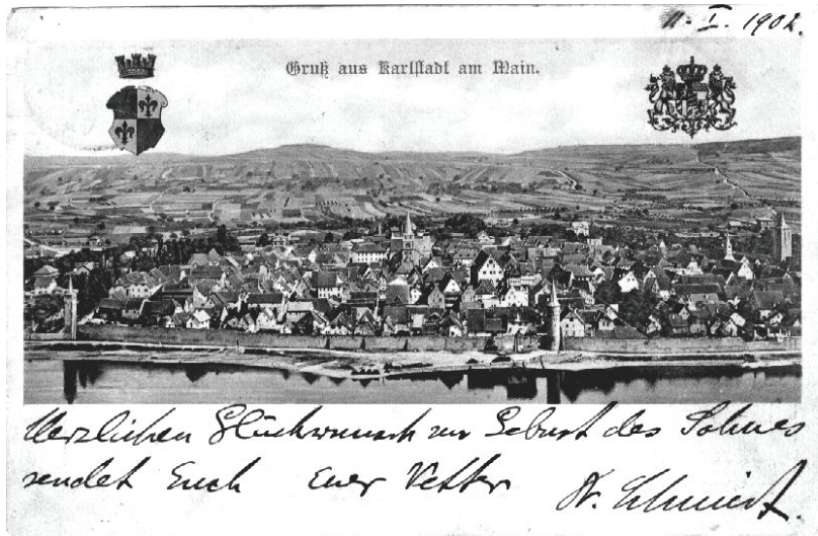 11. I. 1902.
Gruß aus Karlstadt am Main.
Herzlichen Glückwunsch zur Geburt des Sohnes
sendet Euch Euer Vetter